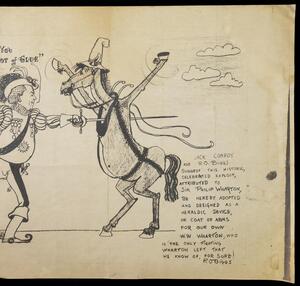 YOU
POT of GLUE"
JACK CONROY
AND R.O. BIGGS
SUGGEST THIS HISTORIC,
CELEBRATED EXPLOIT,
ATTRIBUTED TO
SIR PHILIP WHARTON,
BE HEREBY ADOPTED
AND DESIGNED AS A
HERALDIC DEVICE,
OR COAT OF ARMS
FOR OUR OWN
W.W. WHARTON, WHO
IS THE ONLY FIGHTING
WHARTON LEFT THAT
WE KNOW OF, FOR SURE!
R.O. BIGGS